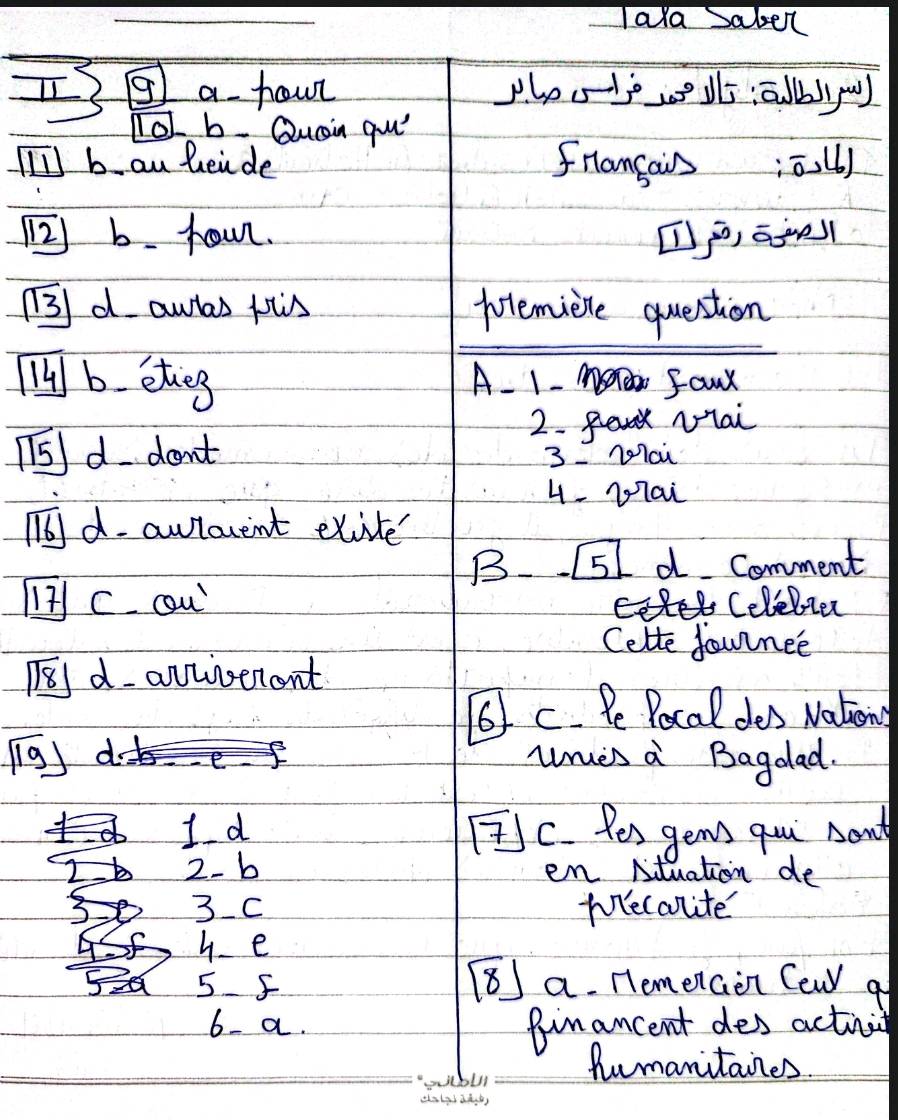 Tala Saber
اسم الطالبة: تالا محمد فراس صابر
المادة: Français
الصفحة رقم 1
première question
A-1- faux
2- faux vrai
3- vrai
4- vrai
B- -5- d- Comment
Celébrer
Cette journeé
6- c- le local des Nations
unies à Bagdad.
7 c- les gens qui sont
en situation de
précarité
8 a- remercier Ceux q
financent des activit
humanitaires.
II 9 a- pour
10- b- Quoin qu'
11 b- au lieu de
12 b- pour.
13 d- auras pris
14 b- étiez
15 d- dont
16 d- auraient existé
17 c- où
18 d- arriveront
19 d- b- -e-f
1-d 1-d
2-b 2-b
3-e 3-c
4-f 4-e
5-a 5-f
6-a.
الأماني
رفيقة نجاحك